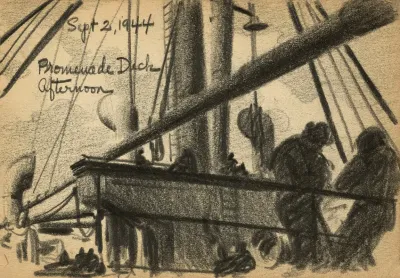 Sept 2, 1944
Promenade Deck
Afternoon